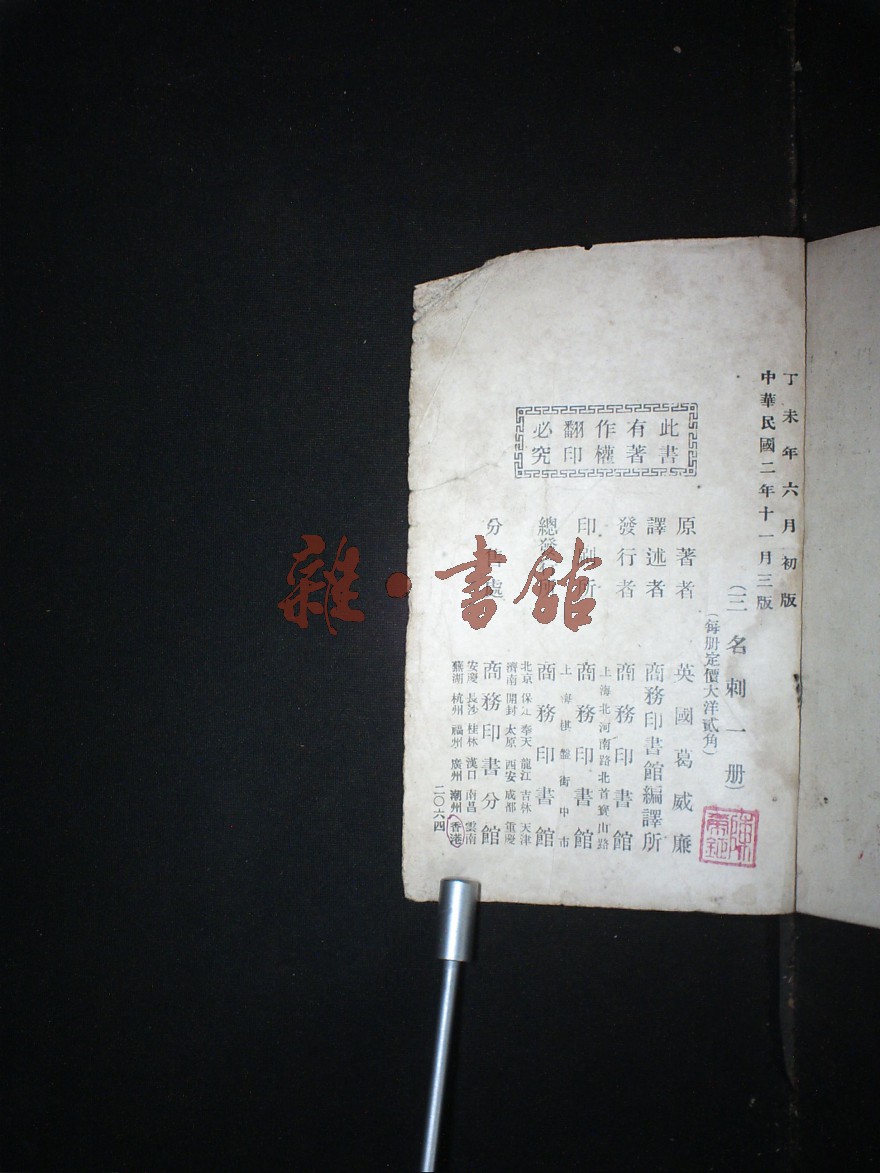 丁未年六月初版
中華民國二年十一月三版
(三名刺一册)
(每册定價大洋貳角)
此書有著作權翻印必究
原著者 英國葛威廉
譯述者 商務印書館編譯所
發行者 商務印書館
上海北河南路北首寶山路
印刷所 商務印書館
上海棋盤街中市
總發行所 商務印書館
分售處 商務印書分館
北京 保定 奉天 龍江 吉林 天津
濟南 開封 太原 西安 成都 重慶
安慶 長沙 桂林 漢口 南昌 雲南
蕪湖 杭州 福州 廣州 潮州 香港
二〇六四
雜·書館